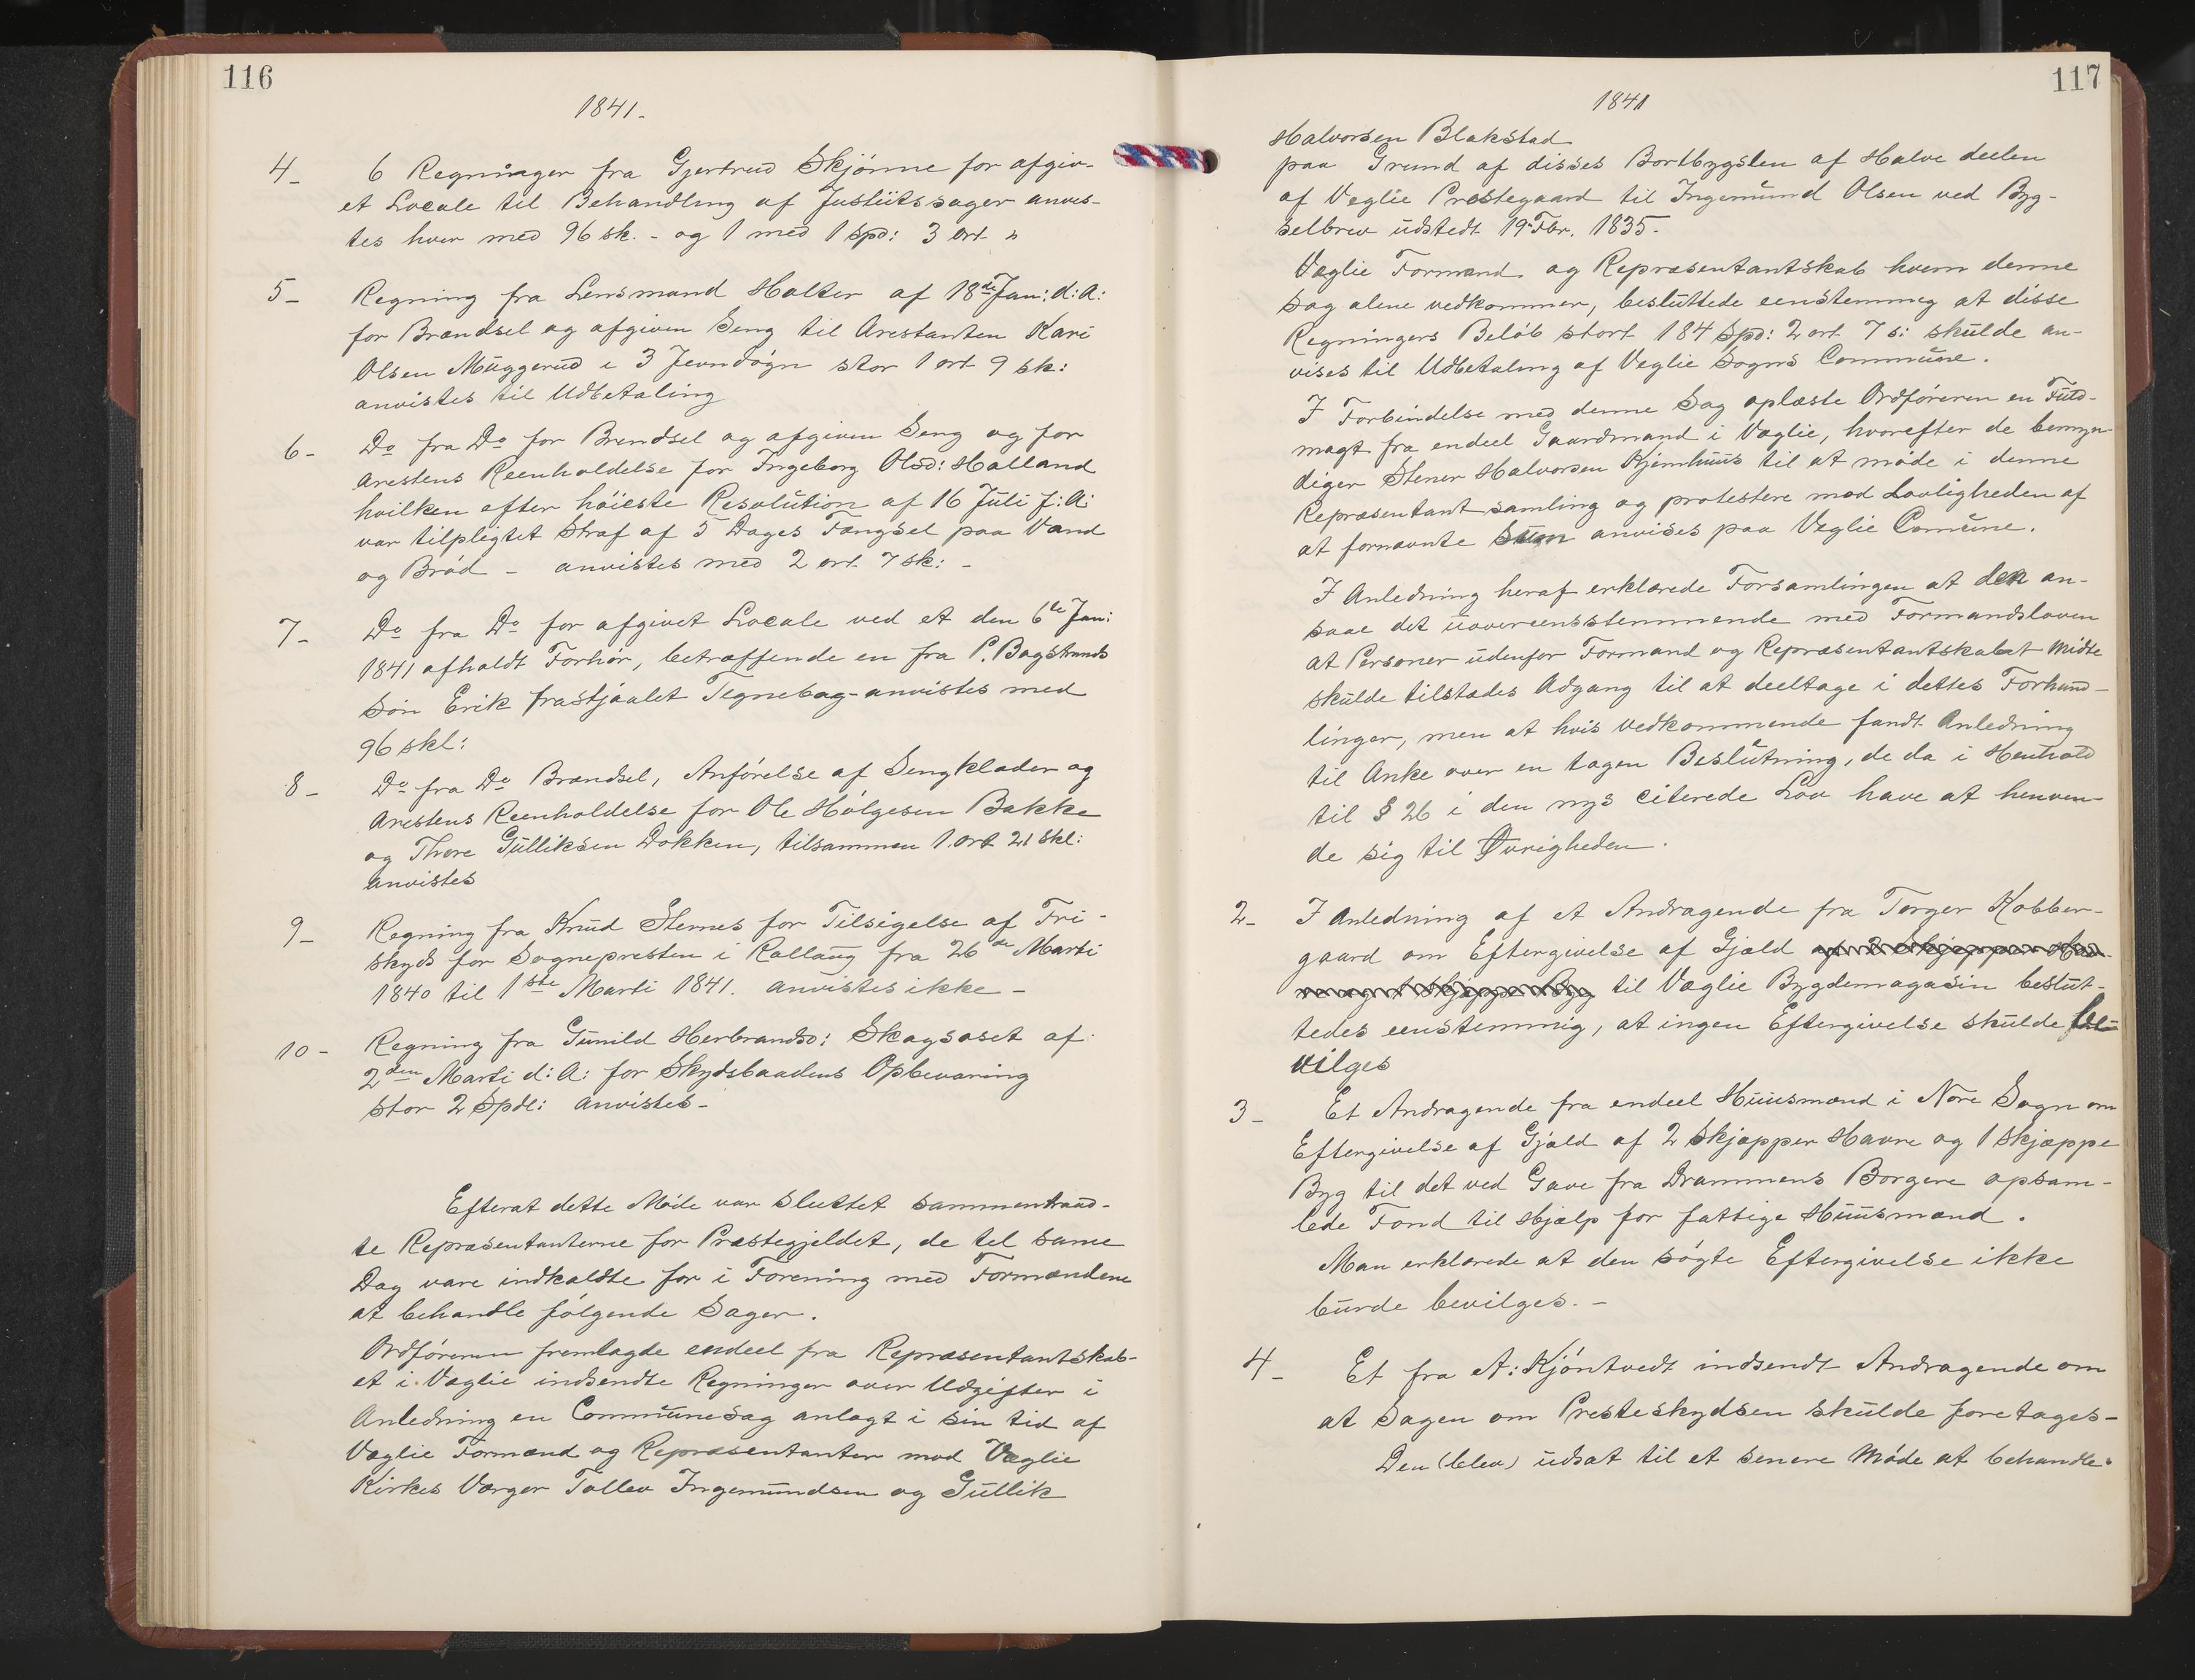 116
1841.
4_ 6 Regninger fra Gjertrud Skjönne for afgiv-
et Locale til Behandling af Justiitssager anvis-
tes hver med 96 sk. - og 1 med 1 Spd: 3 ort "
5_ Regning fra Lensmand Halter af 18de Jan: d: A:
for Brændsel og afgiven Seng til Arestanten Kari
Olsen Muggerud i 3 Jevndøgn stor 1 ort 9 sk:
anvistes til Udbetaling
6- Do fra Do for Brendsel og afgiven Seng og for
Arestens Reenholdelse for Ingeborg Olsd: Halland
hvilken efter höieste Resolution af 16 Juli f: A:
var tilpligtet Straf af 5 Dages Fængsel paa Vand
og Bröd - anvistes med 2 ort 7 sk: -
7- Do fra Do for afgivet Locale ved et den 6te Jan:
1841 afholdt Forhör, betræffende en fra P. Bagstrands
Sön Erik frastjaalet Tegnebog - anvistes med
96 skl:
8- Do fra Do Brændsel, Anförelse af Sengklæder og
Arestens Reenholdelse for Ole Holgesen Bakke
og Thore Gulliksen Dokken, tilsammen 1. ort 21 skl:
anvistes
9- Regning fra Knud Sternes for Tilsigelse af Fri-
skyds for Sognepresten i Rollaug fra 26de Marti
1840 til 1ste Marti 1841. anvistes ikke -
10- Regning fra Gunild Herbrandsd: Skagsoset af
2den Marti d: A: for Skydsbaadens Opbevaring
stor 2 Spdl: anvistes-
Efterat dette Möde var sluttet sammentraad-
te Repræsentanterne for Præstegjeldet, de tel same
Dag vare indkaldte for i Forening med Formændene
at behandle fölgende Sager.
Ordföreren fremlagde endeel fra Repræsentantskab-
et i Væglie indsendte Regninger over Udgifter i
Anledning en Communesag anlagt i sin tid af
Væglie Formænd og Repræsentanter mod Væglie
Kirkes Værger Tollev Ingemundsen og Gullik
117
1841
Halvorsen Blakstad
paa Grund af disses Bortbygslen af Halve deelen
af Væglie Prestegaard til Ingemund Olsen ved Byg-
selbrev udstedt 19 Fbr. 1835.
Væglie Formænd og Repræsentantskab hvem denne
Sag alene vedkommer, besluttede eenstemmig at disse
Regningers Belöb stort 184 Spd: 2 ort 7 s: skulde an-
vises til Udbetaling af Veglie Sogns Commune.
I Forbindelse med denne Sag oplæste Ordföreren en Fuld-
magt fra endeel Gaardmænd i Væglie, hvorefter de bemyn-
diger Stener Halvorsen Kjemhuus til at möde i denne
Repræsentantsamling og protestere mod Lovligheden af
at fornævnte Sum anvises paa Veglie Comune.
I Anledning heraf erklærede Forsamlingen at den an-
saae det uovereensstemmende med Formandsloven
at Personer udenfor Formand og Repræsentantskabet Midte
skulde tilstædes Adgang til at deeltage i dettes Forhand-
linger, men at hvis vedkommende fandt Anledning
til Anke over en tagen Beslutning, de da i Henhold
til § 26 i den nys citerede Lov have at henven-
de sig til Øvrigheden.
2- I Anledning af et Andragende fra Torger Kobber-
gaard om Eftergivelse af Gjæld
til Væglie Bygdemagasin beslut-
tedes eenstemmig, at ingen Eftergivelse skulde be-
vilges
3- Et Andragende fra endeel Huusmænd i Nore Sogn om
Eftergivelse af Gjæld af 2 Skjæpper Havre og 1 Skjæppe
Byg til det ved Gave fra Drammens Borgere opsam-
lede Fond til Hjælp for fattige Huusmænd.
Man erklærede at den sögte Eftergivelse ikke
burde bevilges. -
4- Et fra A: Kjöntvedt indsendt Andragende om
at Sagen om Presteskydsen skulde foretages-
Den (blev) udsat til et senere Möde at behandle.